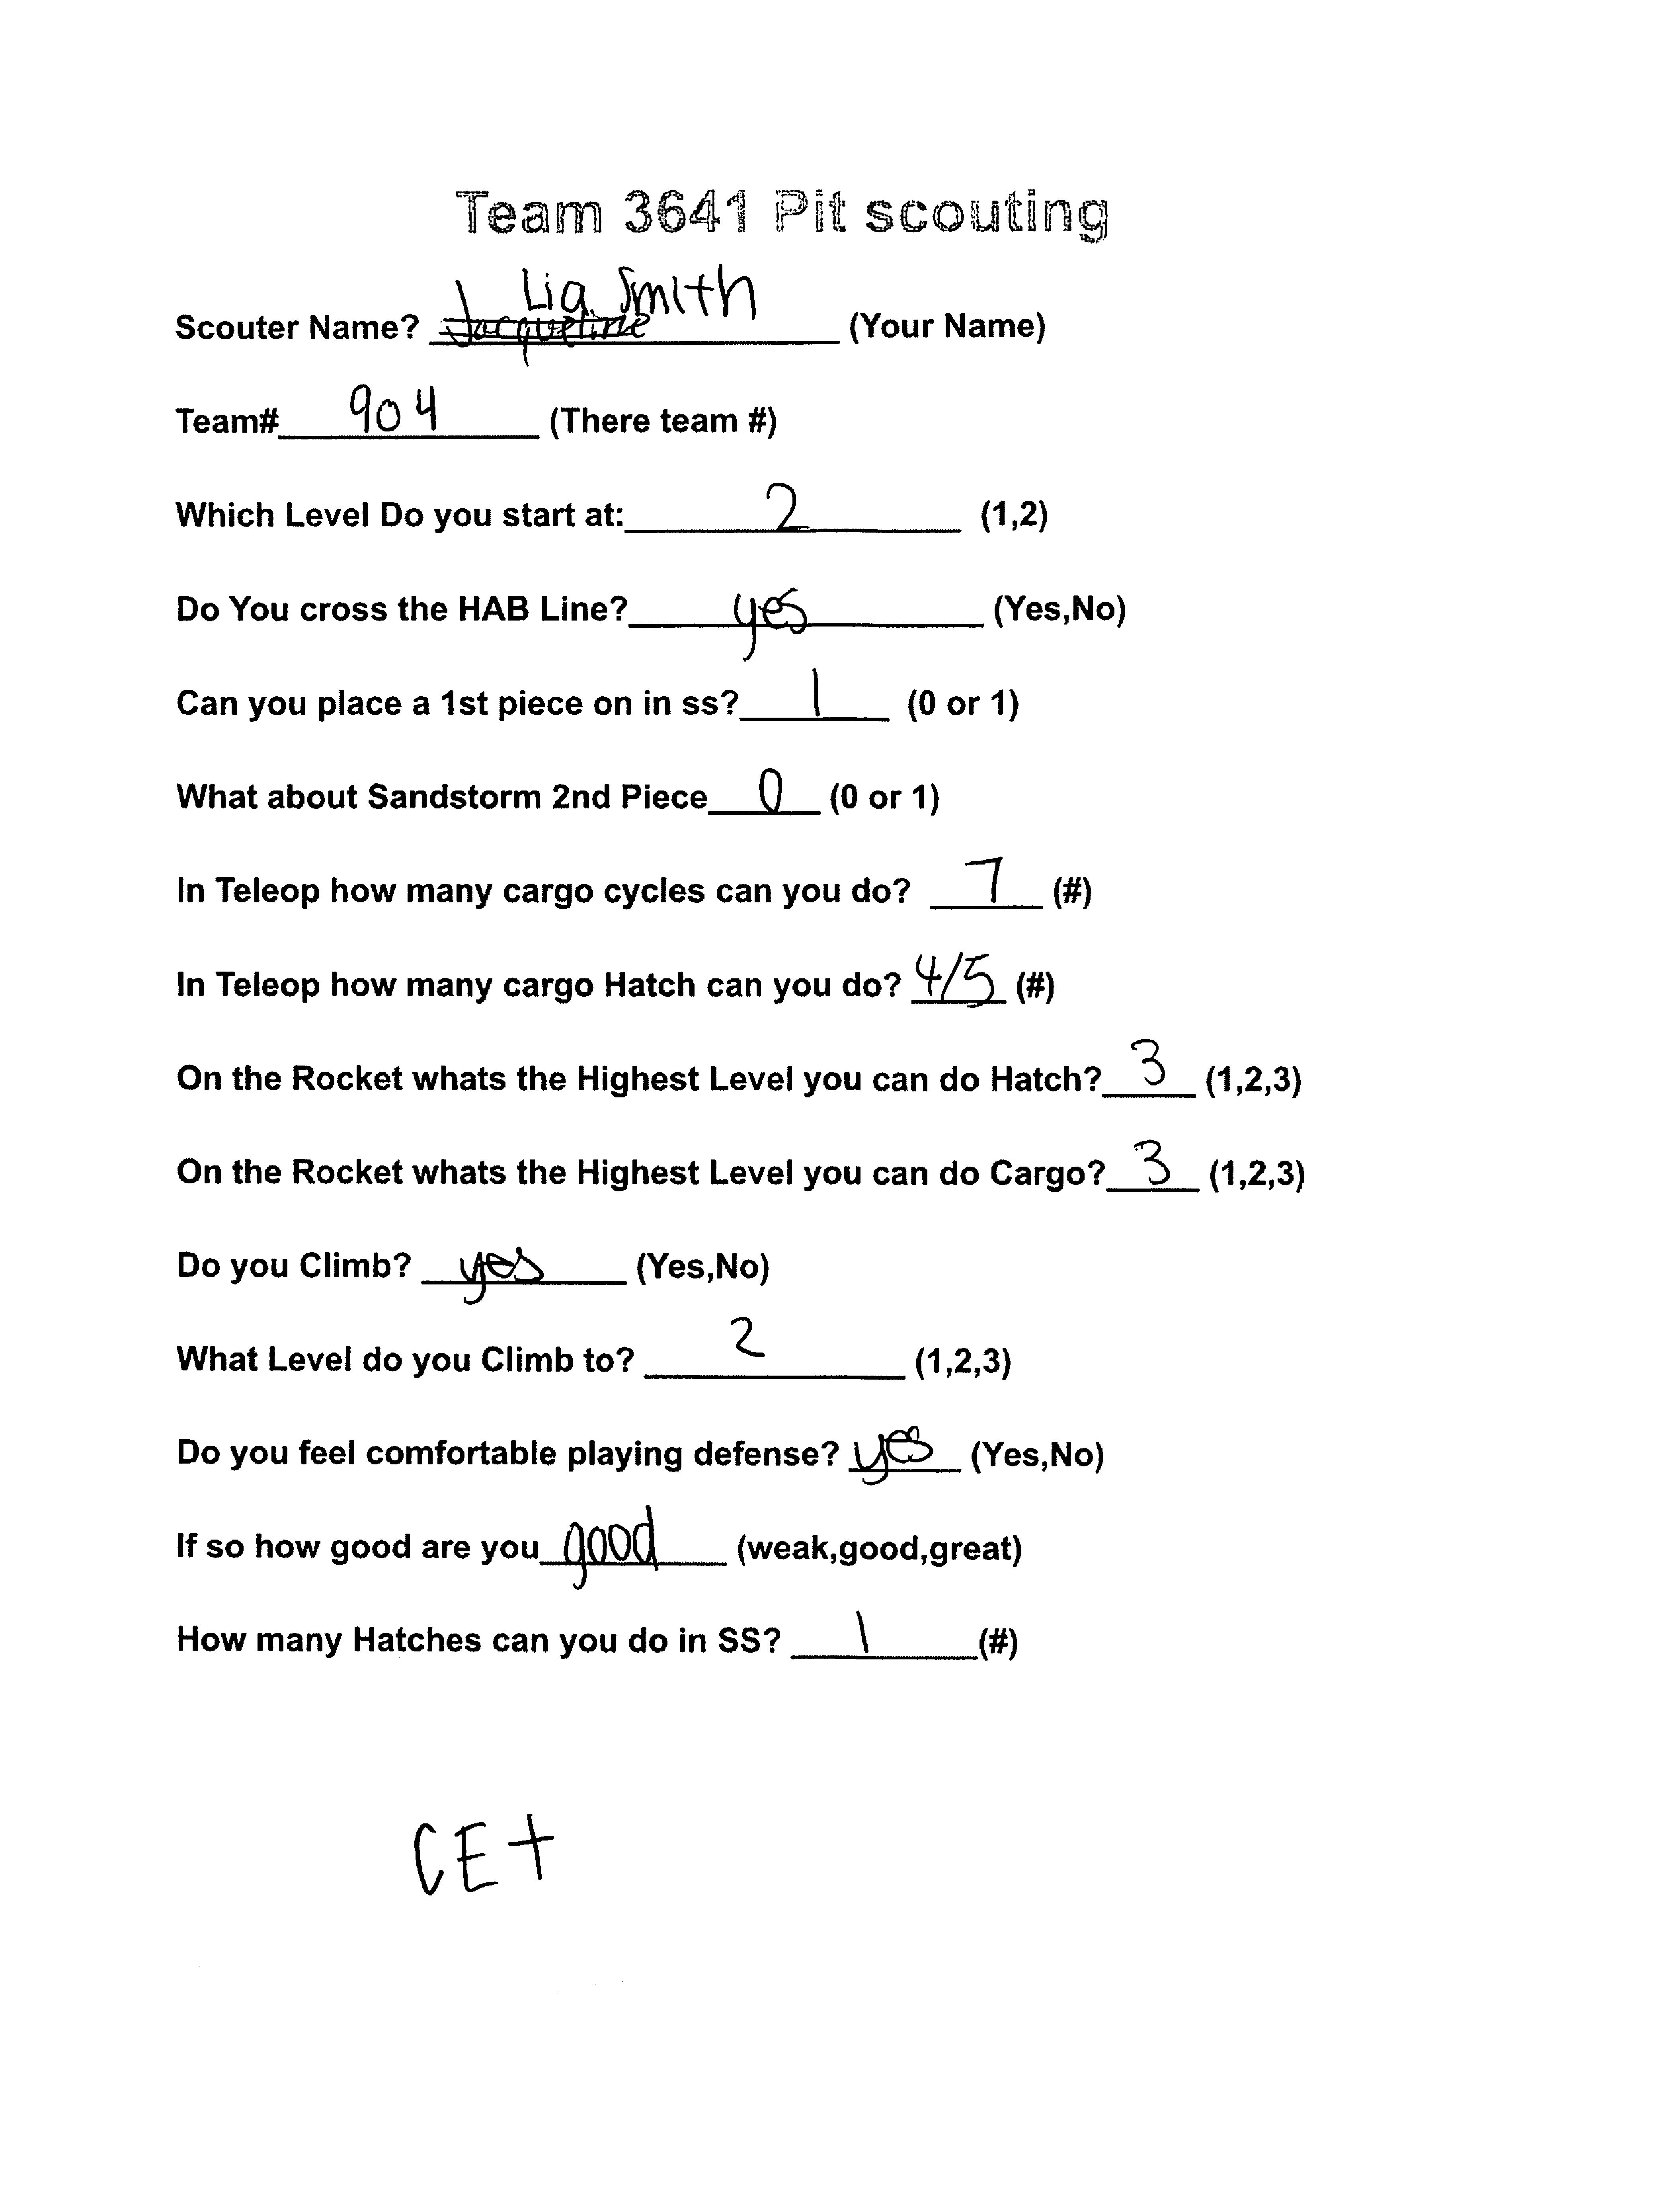 Team 3641 Pit scouting
Lia Smith
Scouter Name? Jacqueline (Your Name)
Team# 904 (There team #)
Which Level Do you start at: 2 (1,2)
Do You cross the HAB Line? yes (Yes,No)
Can you place a 1st piece on in ss? 1 (0 or 1)
What about Sandstorm 2nd Piece 0 (0 or 1)
In Teleop how many cargo cycles can you do? 7 (#)
In Teleop how many cargo Hatch can you do? 4/5 (#)
On the Rocket whats the Highest Level you can do Hatch? 3 (1,2,3)
On the Rocket whats the Highest Level you can do Cargo? 3 (1,2,3)
Do you Climb? yes (Yes,No)
What Level do you Climb to? 2 (1,2,3)
Do you feel comfortable playing defense? yes (Yes,No)
If so how good are you good (weak,good,great)
How many Hatches can you do in SS? 1 (#)
CE+